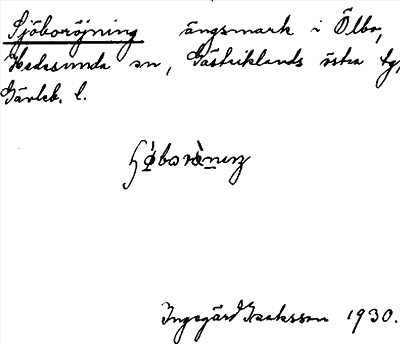 Sjöboröjning ängsmark i Ölbo,
Hedesunda sn, Gästriklands östra tg,
Gävleb. l.
Ingegärd Isaksson 1930.